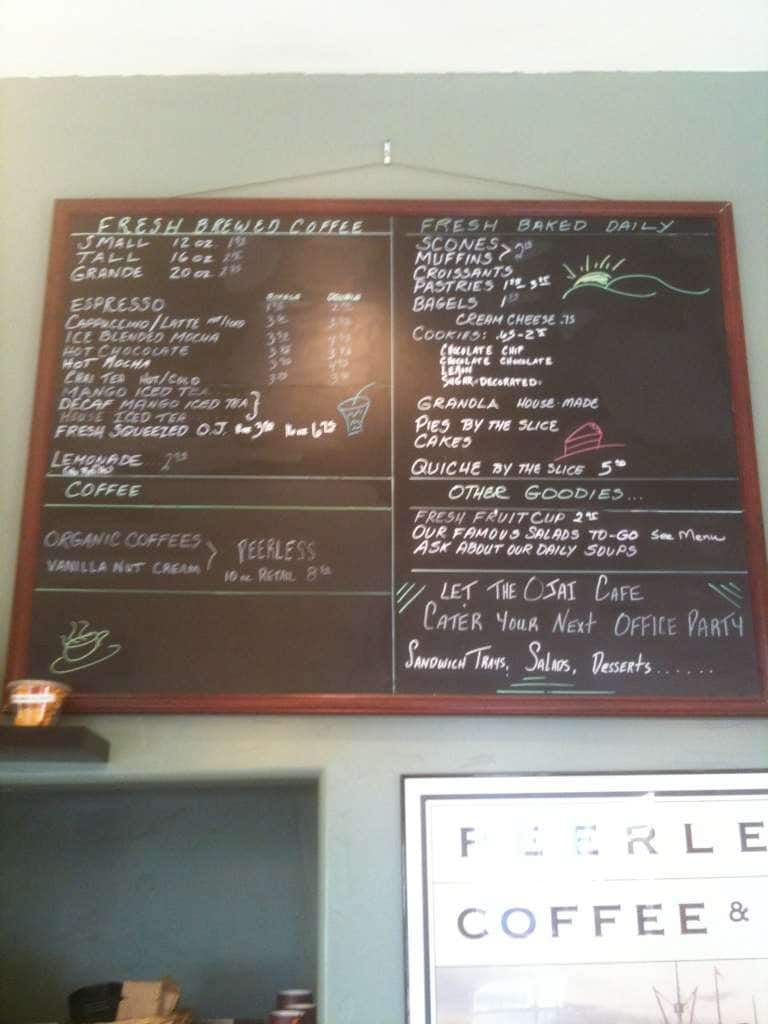 FRESH BREWED COFFEE
SMALL 12 oz
TALL 16 oz
GRANDE 20 oz
ESPRESSO DOUBLE
CAPPUCCINO/LATTE
ICE BLENDED MOCHA
HOT CHOCOLATE
HOT MOCHA
CHAI TEA HOT/COLD
MANGO ICED TEA
DECAF MANGO ICED TEA
HOUSE ICED TEA
FRESH SQUEEZED O.J.
LEMONADE
COFFEE
ORGANIC COFFEES PEERLESS
VANILLA NUT CREAM 10 oz RETAIL
FRESH BAKED DAILY
SCONES
MUFFINS
CROISSANTS
PASTRIES
BAGELS
CREAM CHEESE .75
COOKIES:
CHOCOLATE CHIP
CHOCOLATE CHOCOLATE
LEMON
SUGAR-DECORATED
GRANOLA HOUSE-MADE
PIES BY THE SLICE
CAKES
QUICHE BY THE SLICE
OTHER GOODIES...
FRESH FRUIT CUP 2.95
OUR FAMOUS SALADS TO-GO See Menu
ASK ABOUT OUR DAILY SOUPS
LET THE OJAI CAFE
CATER YOUR NEXT OFFICE PARTY
SANDWICH TRAYS, SALADS, DESSERTS.......
PEERLE
COFFEE &